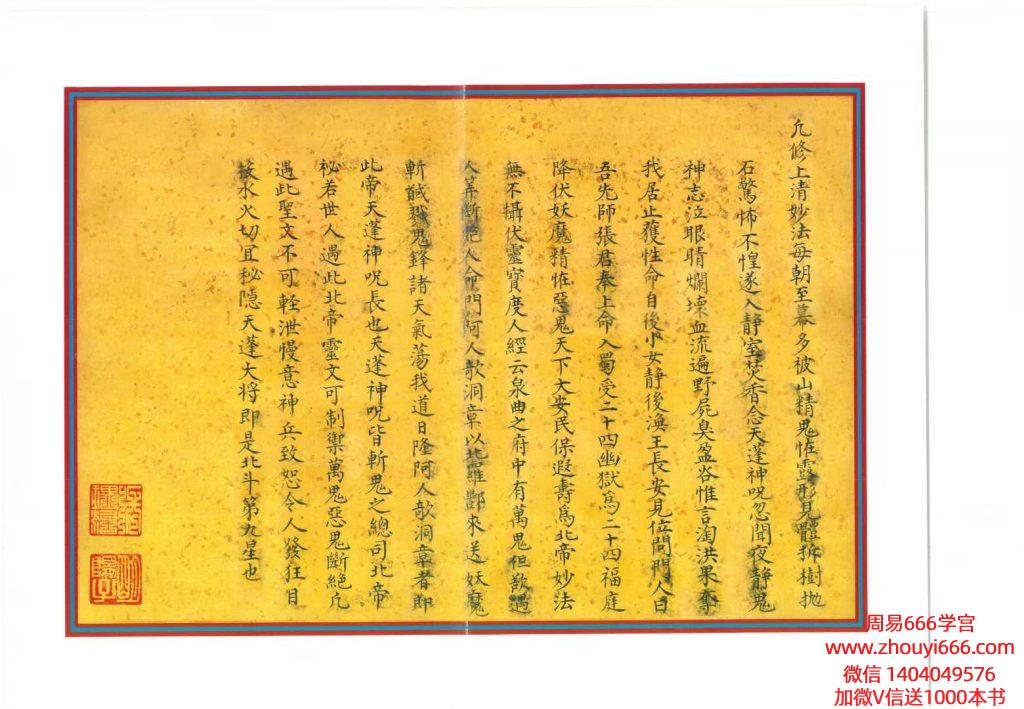 凢修上清妙法每朝至幕多被山精鬼恠露形見體拆樹拋
石驚怖不惶遂入静室焚香念天蓬神呪忽聞夜静鬼
神志泣眼睛爛壞血流遍野屍臭盈谷惟言淘洪果奪
我居止獲性命自後小女静後渙王長安見位間門人曰
吾先師張君奉上命入蜀受二十四幽獄為二十四福庭
降伏妖魔精恠惡鬼天下大安民保遐壽為北帝妙法
無不攝伏靈寳度人經云泉曲之府中有萬鬼但歆遏
人筭斷絶人命門阿人歌洞章以攝羅酆來送妖魔
斬馘戮鬼鋒諸天氣蕩我道日隆阿人歌洞章者即
此帝天蓬神呪長也天蓬神呪皆斬鬼之總司北帝
祕若世人遇此北帝靈文可制禦萬鬼惡鬼斷絶凢
遇此聖文不可輊泄慢意神兵致恕令人發狂目
被水火切宜秘隱天蓬大将即是北斗第九星也
周易666学宫
www.zhouyi666.com
微信 1404049576
加微V信送1000本书